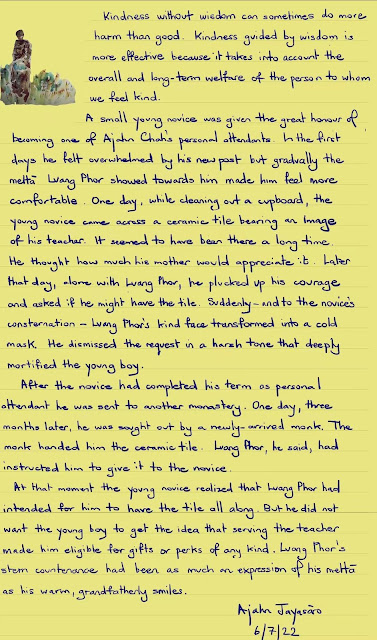 Kindness without wisdom can sometimes do more
harm than good. Kindness guided by wisdom is
more effective because it takes into account the
overall and long-term welfare of the person to whom
we feel kind.
A small young novice was given the great honour of
becoming one of Ajahn Chah's personal attendants. In the first
days he felt overwhelmed by his new post but gradually the
mettā Luang Phor showed towards him made him feel more
comfortable. One day, while cleaning out a cupboard, the
young novice came across a ceramic tile bearing an image
of his teacher. It seemed to have been there a long time.
He thought how much his mother would appreciate it. Later
that day, alone with Luang Phor, he plucked up his courage
and asked if he might have the tile. Suddenly – and to the novice's
consternation – Luang Phor's kind face transformed into a cold
mask. He dismissed the request in a harsh tone that deeply
mortified the young boy.
After the novice had completed his term as personal
attendant he was sent to another monastery. One day, three
months later, he was sought out by a newly-arrived monk. The
monk handed him the ceramic tile. Luang Phor, he said, had
instructed him to give it to the novice.
At that moment the young novice realized that Luang Phor had
intended for him to have the tile all along. But he did not
want the young boy to get the idea that serving the teacher
made him eligible for gifts or perks of any kind. Luang Phor's
stern countenance had been as much an expression of his mettā
as his warm, grandfatherly smiles.
Ajahn Jayasāro
6/7/22